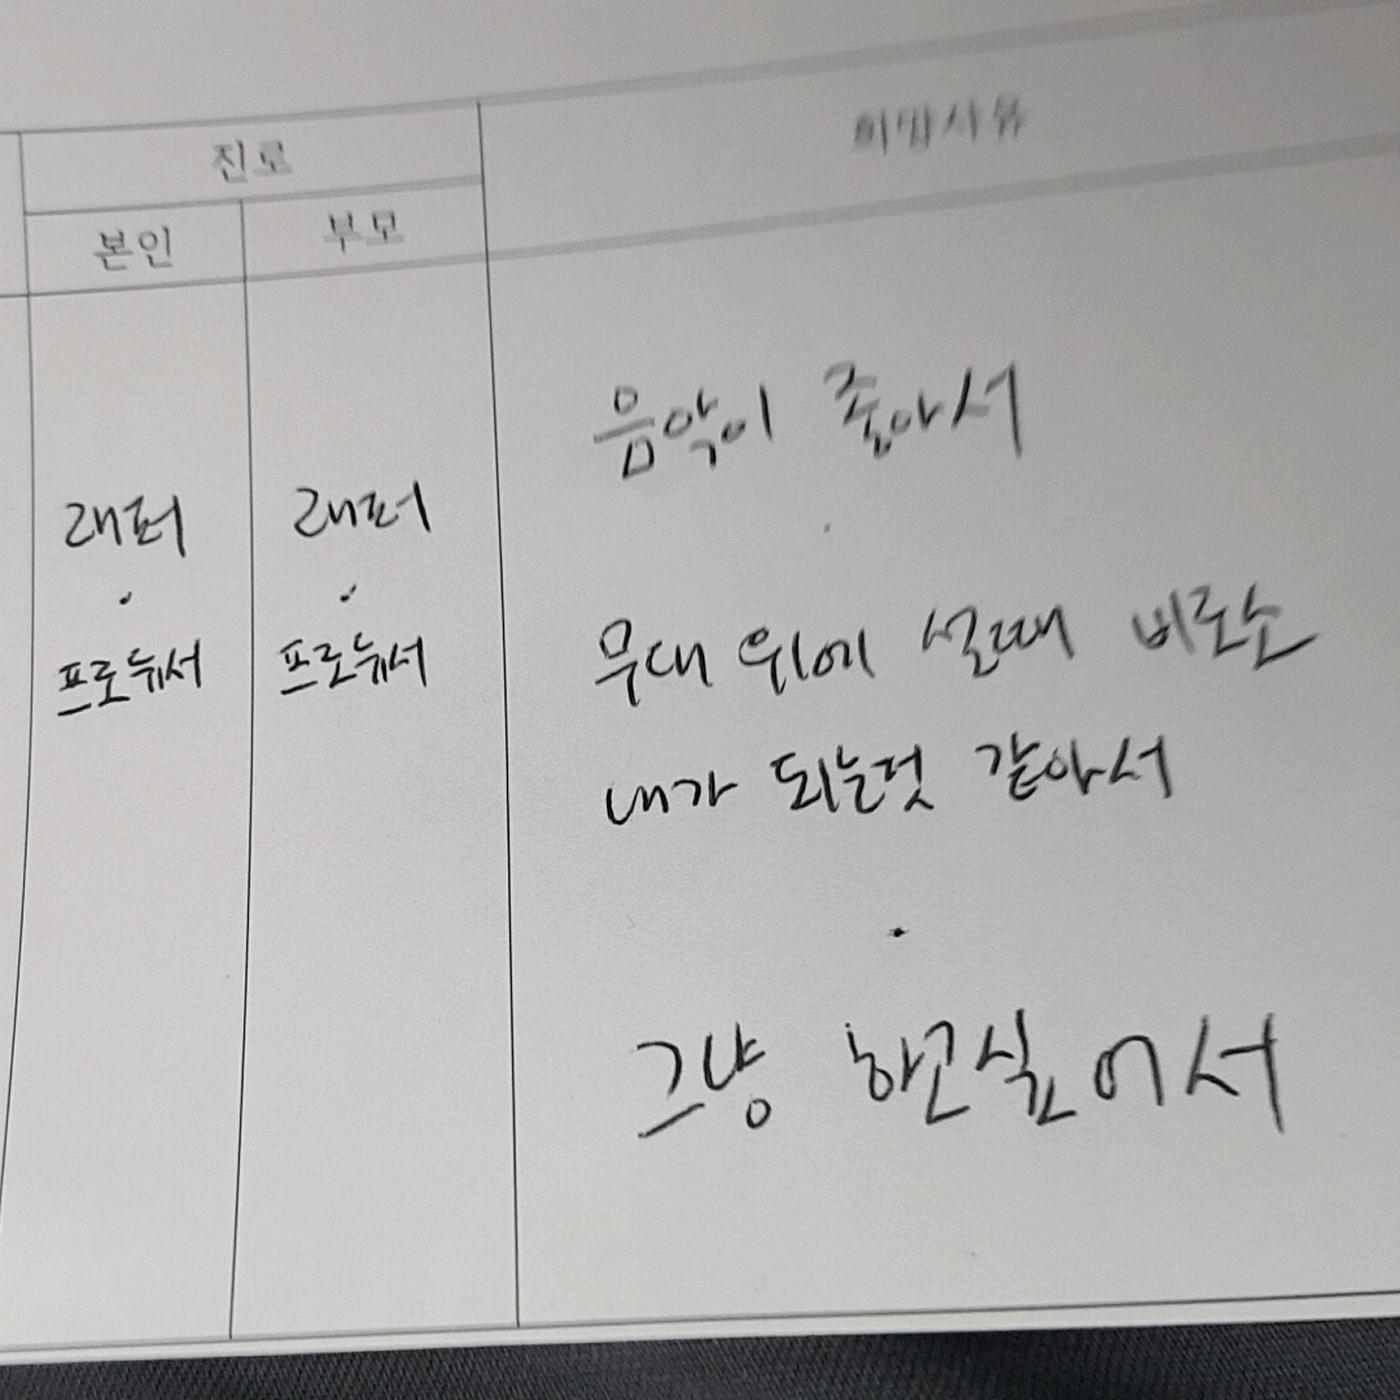 진로
희망사유
본인
부모
음악이 좋아서
래퍼
래퍼
프로듀서
프로듀서
무대 위에 설때 비로소
내가 되는것 같아서
그냥 하고싶어서